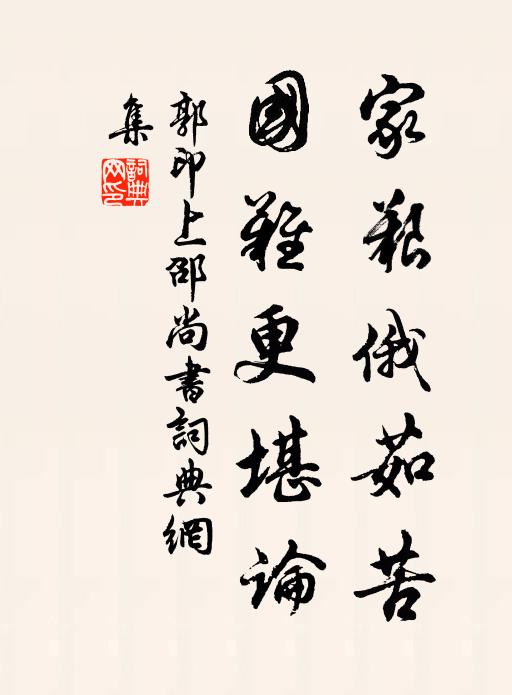 家艱俄茹苦
國難更堪論
郭印上邵尚書詞典網
集
詞典網印